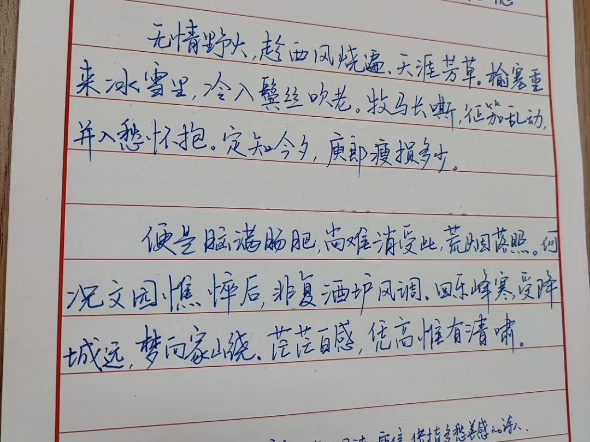 无情野火，趁西风烧遍、天涯芳草。榆塞重
来冰雪里，冷入鬓丝吹老。牧马长嘶，征笳乱动，
并入愁怀抱。定知今夕，庾郎瘦损多少。
便是脑满肠肥，尚难消受此，荒烟落照。何
况文园憔悴后，非复酒垆风调。回乐峰寒，受降
城远，梦向家山绕。茫茫百感，凭高惟有清啸。